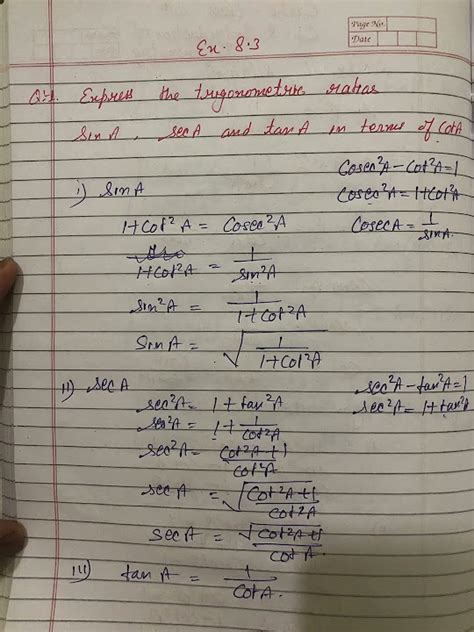 Page No.
Date
Ex. 8.3
Q:1. Express the trigonometric ratios
Sin A, sec A and tan A in terms of Cot A
Cosec²A - Cot²A = 1
i) Sin A
Cosec²A = 1+Cot²A
1+Cot²A = Cosec²A
Cosec A = 1/Sin A.
1+Cot²A = 1/Sin²A
Sin²A = 1/1+Cot²A
Sin A = √1/1+Cot²A
ii) sec A
sec²A - tan²A = 1
sec²A = 1+tan²A
sec²A = 1+tan²A
sec²A = 1+1/Cot²A
sec²A = Cot²A+1/Cot²A
sec A = √Cot²A+1/Cot²A
sec A = √Cot²A+1/Cot A
iii) tan A = 1/Cot A.